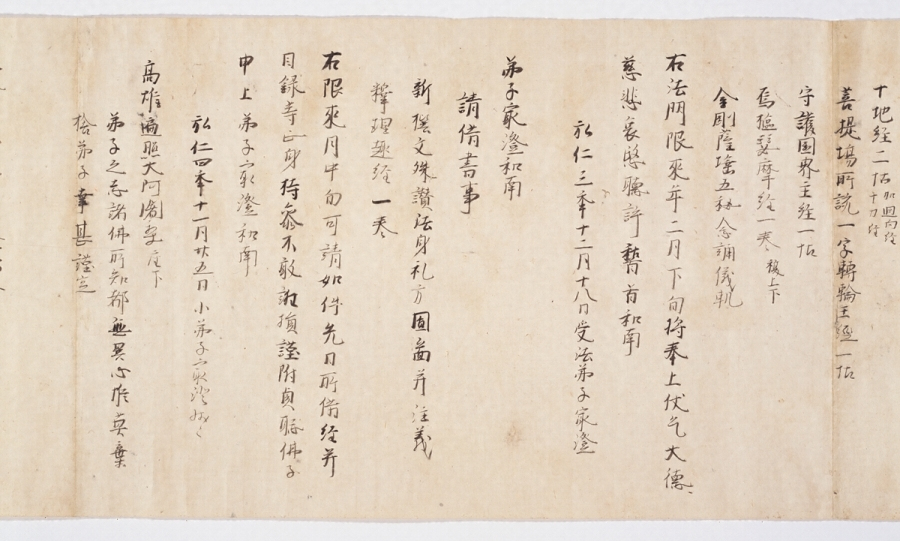 十地経二帖 加廻向経 十力経
菩提場所説一字転輪王経一帖
守護国界主経一帖
蘇摩経一巻 複上下
金剛薩埵五秘念誦儀軌
右法門限来年二月下旬将奉上伏乞大徳
慈悲哀愍聴許誓首和南
弘仁三年十二月十八日受法弟子最澄
弟子最澄和南
請借書事
新撰文殊讃法身礼方円図并注義
釈理趣経一巻
右限来月中旬可請如件先日所借経并
目録寺正身持参不敢謝損謹附貞聡仏子
申上弟子最澄和南
弘仁四年十一月廿五日小弟子最澄
高雄遍照大阿闍梨座下
弟子之志諸仏所知都無異心唯莫棄
捨弟子幸甚謹空